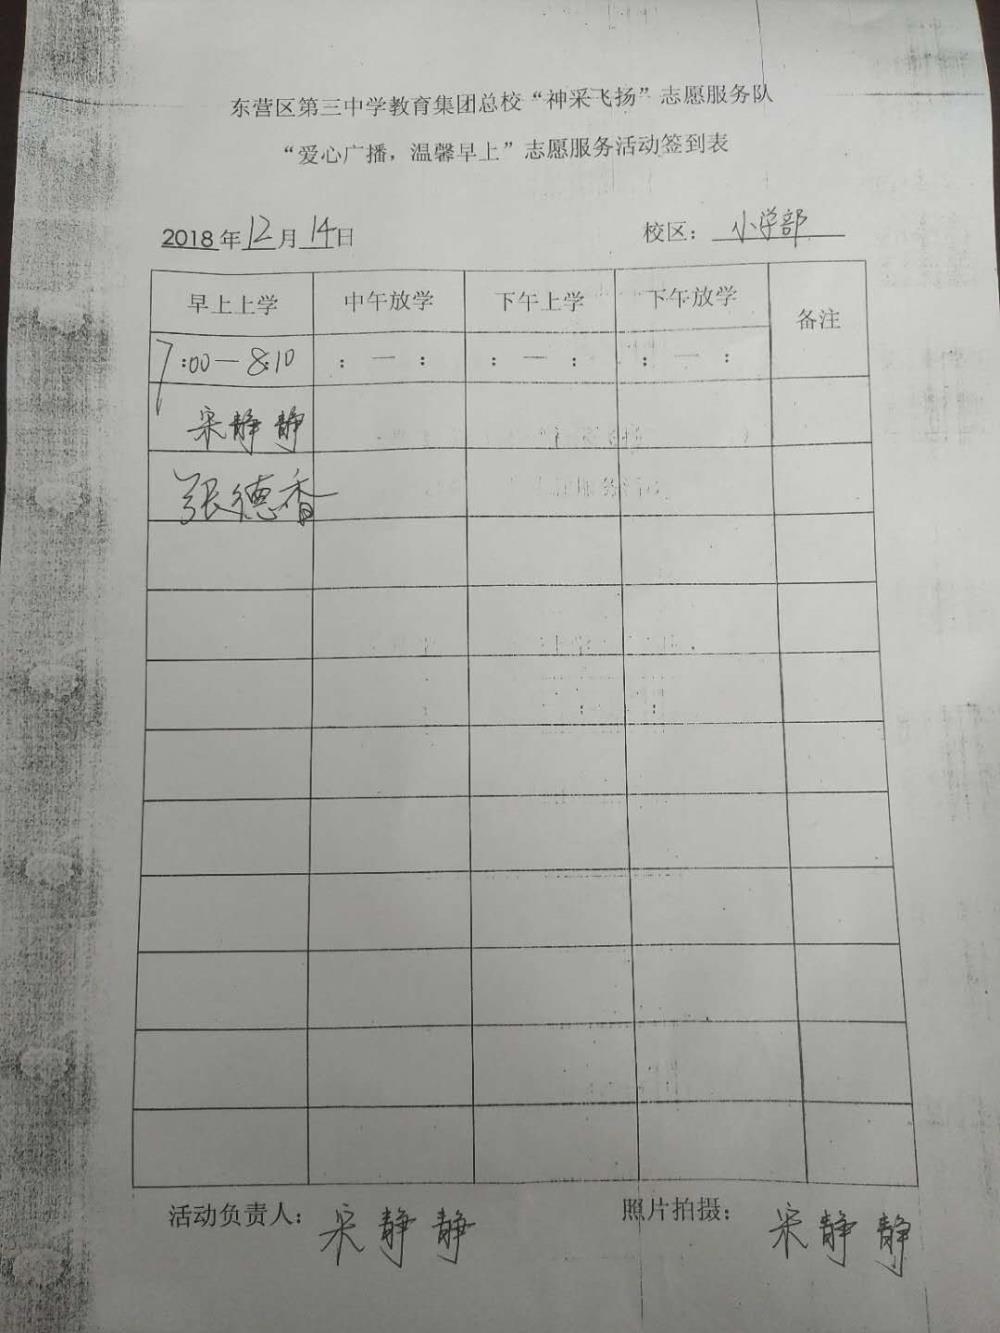 东营区第三中学教育集团总校“神采飞扬”志愿服务队
“爱心广播，温馨早上”志愿服务活动签到表
2018年12月14日 校区：小学部
早上上学 中午放学 下午上学 下午放学 备注
7:00—8:10 ： — ： ： — ： ： — ：
宋静静
张德香
活动负责人：宋静静 照片拍摄：宋静静